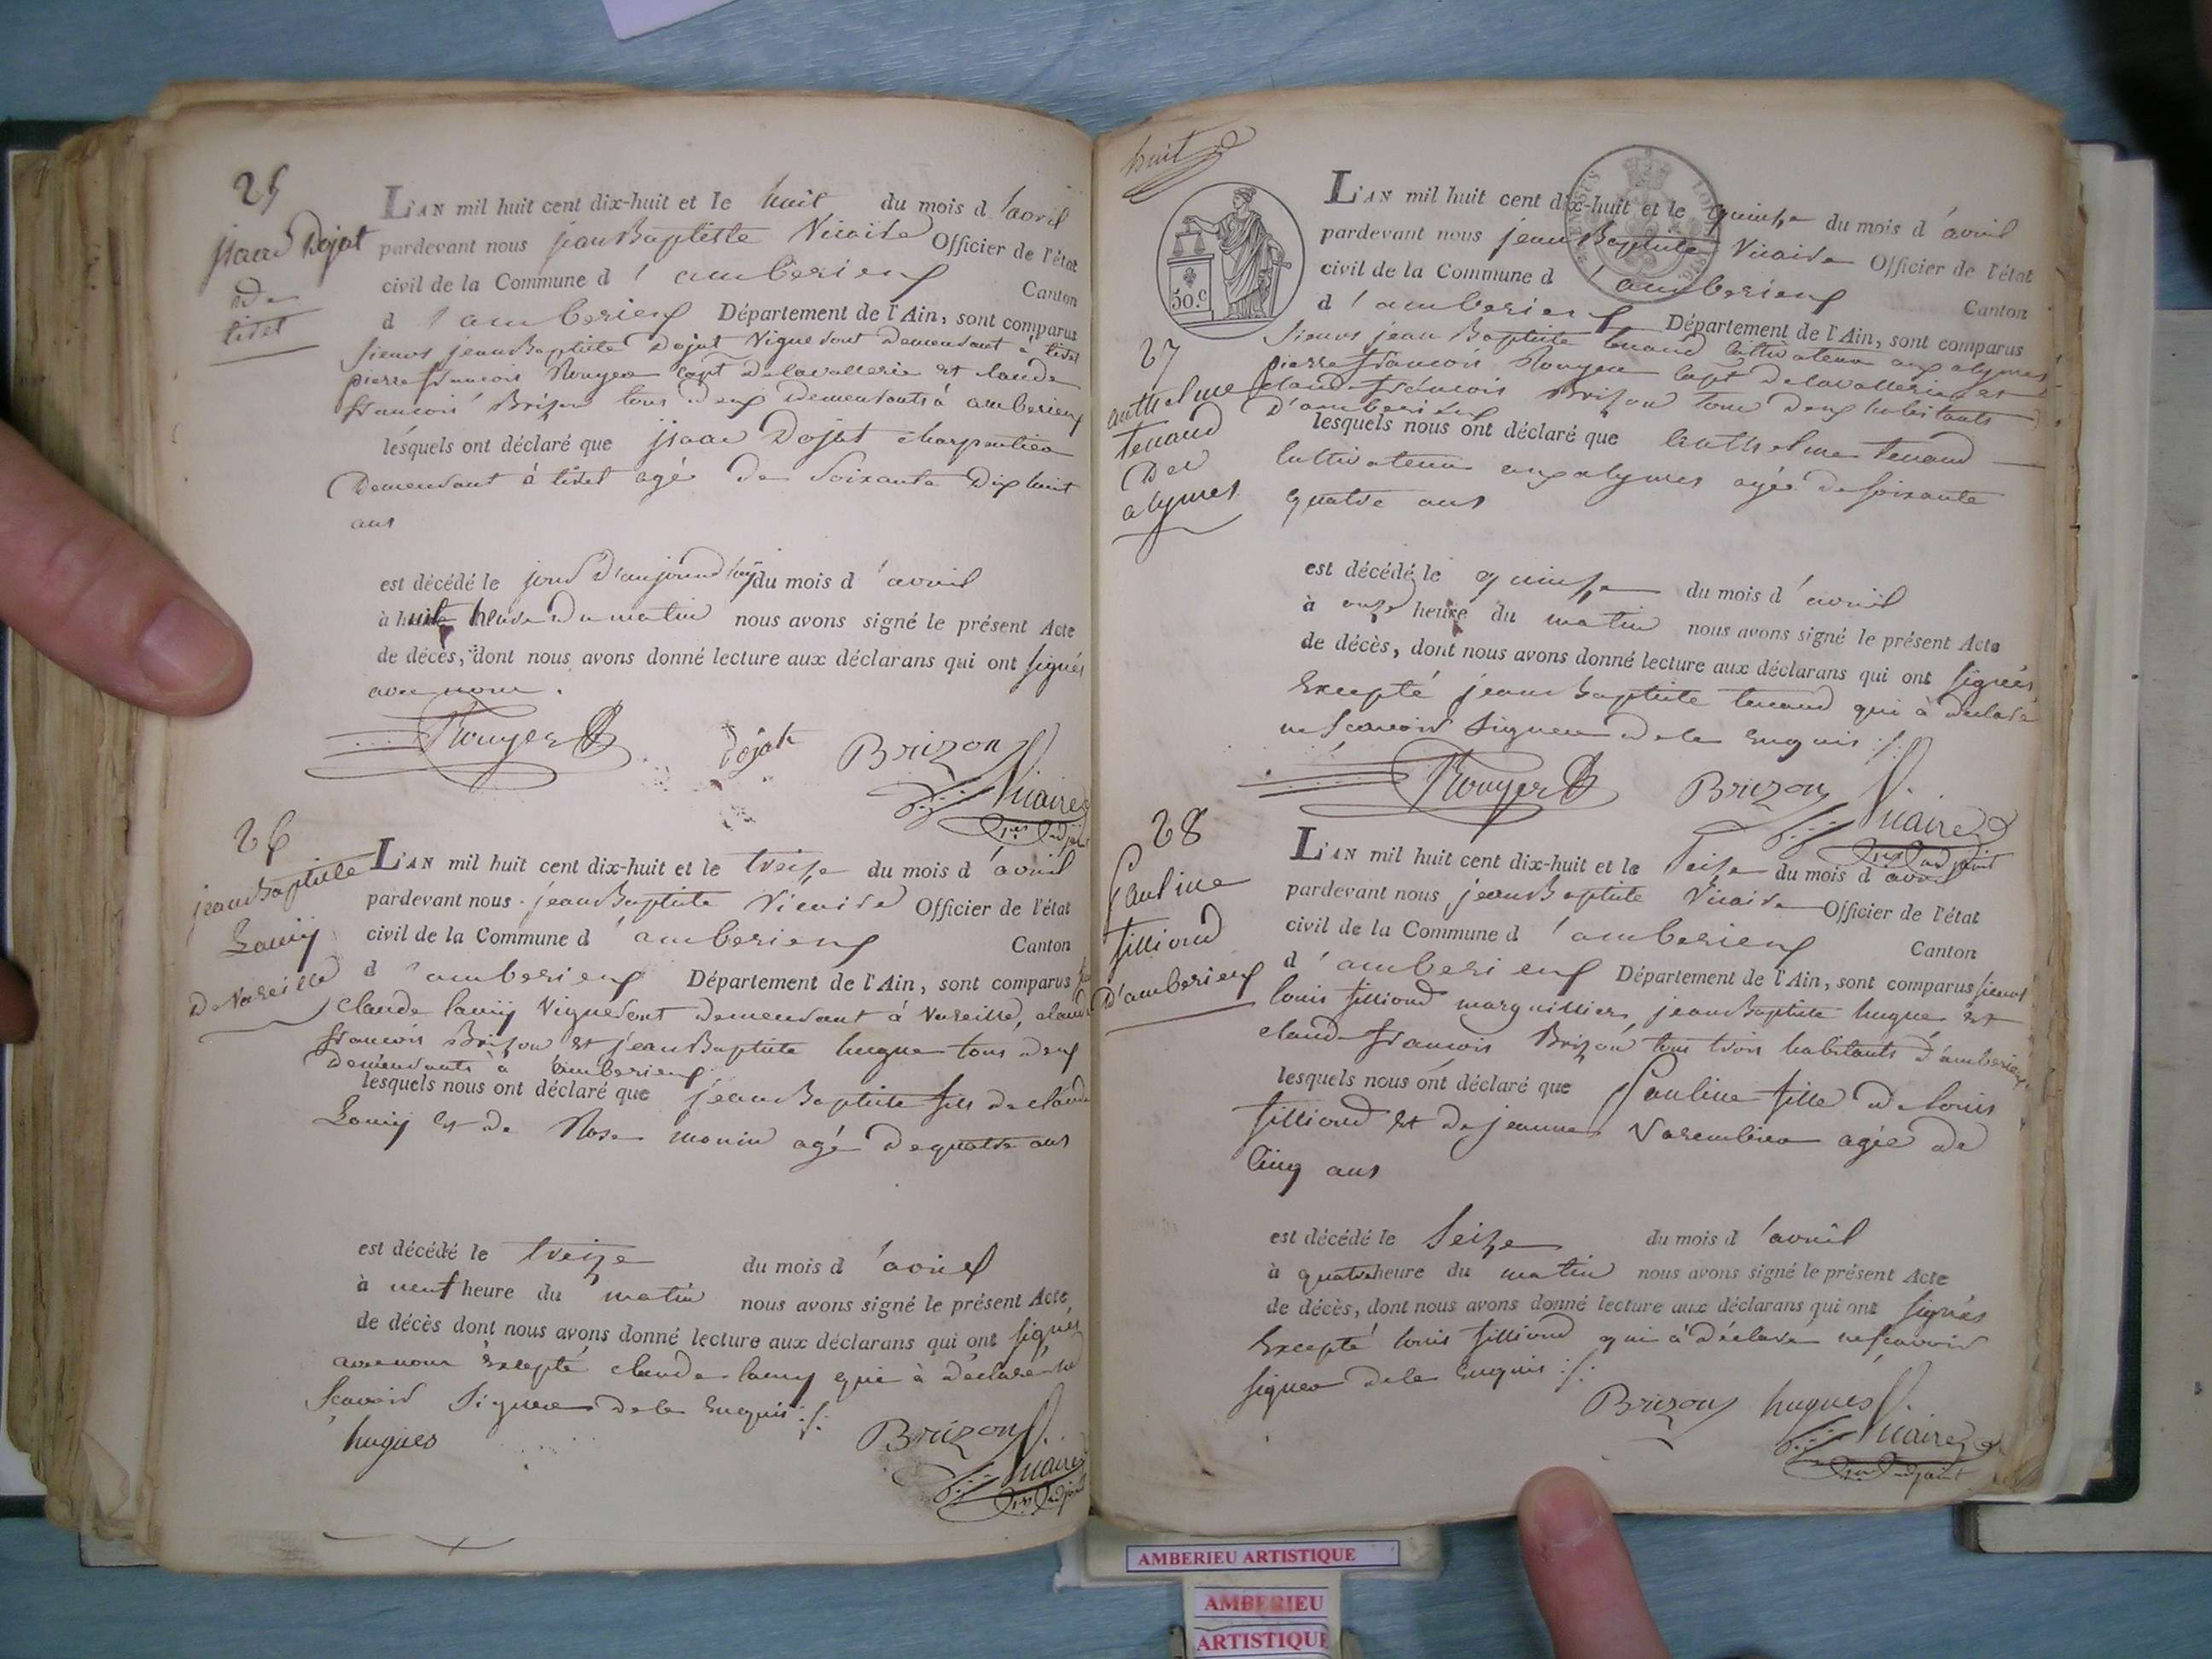 25
isaac Dojat
de
tiret
L'AN mil huit cent dix-huit et le huit du mois d'avril
pardevant nous jean Baptiste Vicaire Officier de l'état
civil de la Commune d'amberieux Canton
d'amberieux Département de l'Ain, sont comparus
sieurs jean Baptiste Dojat Vigneront Demeurant à tiret
pierre francois Rouyer capt de cavallerie et claude
francois Brizon tous deux Demeurants à amberieux
lesquels ont déclaré que isaac Dojat charpentier
Demeurant à tiret agé de Soixante Dix huit
ans
est décédé le jour d'aujourd'huy du mois d'avril
à huit heure du matin nous avons signé le présent Acte
de décès, dont nous avons donné lecture aux déclarans qui ont signés
avec nous.
Rouyer
Dojat
Brizon
Vicaire
1er adjoint
26
jean Baptiste
Lamy
De Vareille
L'AN mil huit cent dix-huit et le treize du mois d'avril
pardevant nous jean Baptiste Vicaire Officier de l'état
civil de la Commune d'amberieux Canton
d'amberieux Département de l'Ain, sont comparus
Claude lamy Vigneront demeurant à Vareille, claude
francois Brizon et jean Baptiste hugue tous deux
Demeurants à amberieux
lesquels nous ont déclaré que jean Baptiste fils de claude
Lamy et de Rose monin agé de quatre ans
est décédé le treize du mois d'avril
à neuf heure du matin nous avons signé le présent Acte,
de décès dont nous avons donné lecture aux déclarans qui ont signés
avec nous Excepté claude lamy qui à déclaré ne
Scavoir Signer de le Enquis :/:
hugues
Brizon
Vicaire
1er adjoint
huit
50.c
27
anthelme
tenand
Des
alymes
L'AN mil huit cent dix-huit et le quinze du mois d'avril
pardevant nous jean Baptiste Vicaire Officier de l'état
civil de la Commune d'amberieux Canton
d'amberieux Département de l'Ain, sont comparus
Sieurs jean Baptiste tenand Cultivateur aux alymes
pierre francois Rouyer capt de cavallerie et
claude francois Brizon tous deux habitants
D'amberieux
lesquels nous ont déclaré que anthelme tenand
Cultivateur aux alymes agé de soixante
quatre ans
est décédé le quinze du mois d'avril
à onze heure du matin nous avons signé le présent Acte
de décès, dont nous avons donné lecture aux déclarans qui ont signés
Excepté jean Baptiste tenand qui à déclaré
ne Scavoir Signer de le Enquis :/:
Rouyer
Brizon
Vicaire
1er adjoint
28
Pauline
filliond
D'amberieux
L'AN mil huit cent dix-huit et le Seize du mois d'avril
pardevant nous jean Baptiste Vicaire Officier de l'état
civil de la Commune d'amberieux Canton
d'amberieux Département de l'Ain, sont comparus sieurs
louis filliond marguillier, jean Baptiste hugue et
claude francois Brizon tous trois habitants d'amberieux
lesquels nous ont déclaré que Pauline fille de louis
filliond et de jeanne Varembier agée de
Cinq ans
est décédé le Seize du mois d'avril
à quatre heure du matin nous avons signé le présent Acte
de décès, dont nous avons donné lecture aux déclarans qui ont signés
Excepté louis filliond qui à déclaré ne scavoir
signer de le Enquis :/:
Brizon
hugues
Vicaire
1er adjoint
AMBERIEU ARTISTIQUE
AMBERIEU
ARTISTIQUE